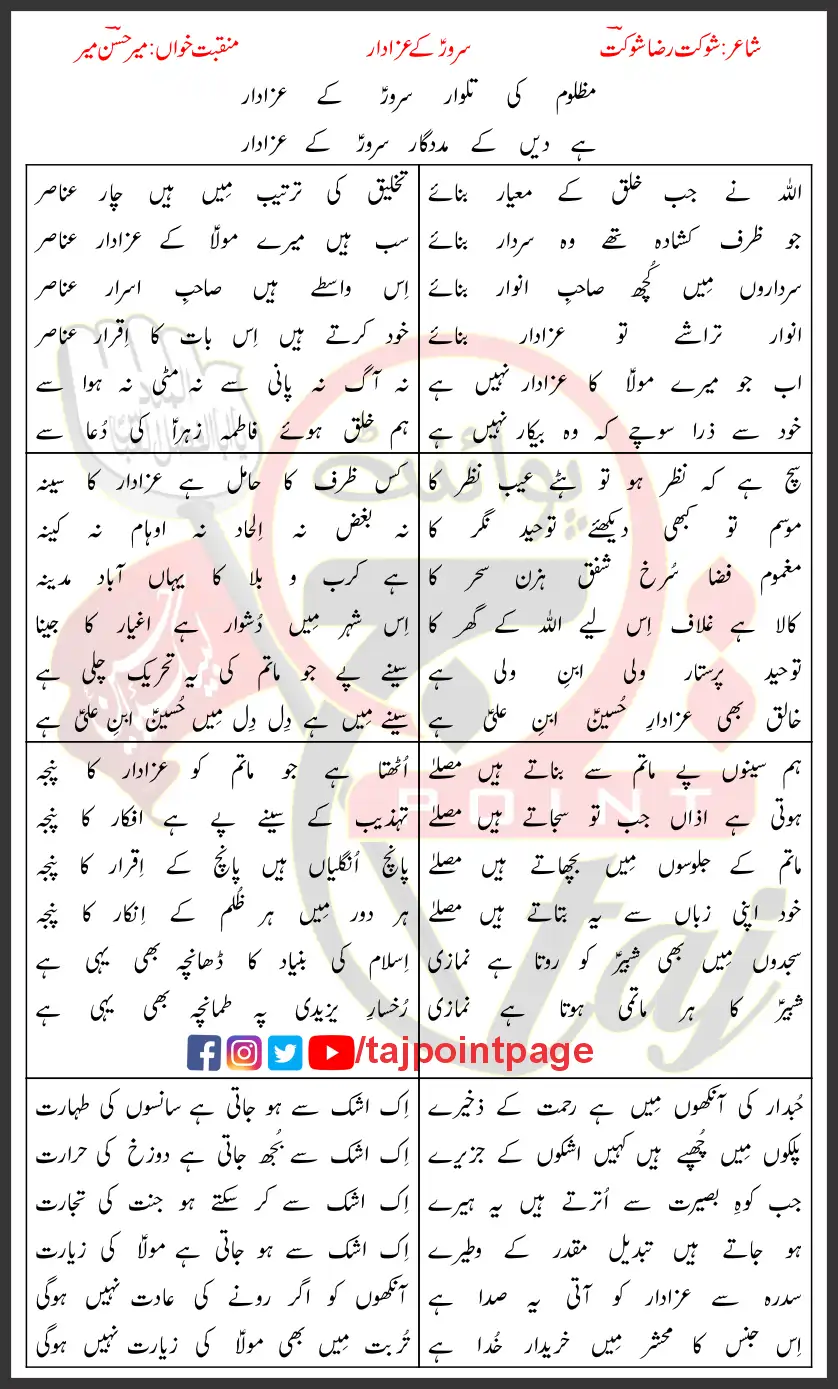 شاعر: شوکت رضا شوکتؔ سرورؑ کے عزادار منقبت خواں: میر حسن میرؔ
مظلوم کی تلوار سرورؑ کے عزادار
ہے دیں کے مددگار سرورؑ کے عزادار
اللہ نے جب خلق کے معیار بنائے
جو ظرف کشادہ تھے وہ سردار بنائے
سرداروں مِیں کُچھ صاحبِ انوار بنائے
انوار تراشے تو عزادار بنائے
اب جو میرے مولاؑ کا عزادار نہیں ہے
خود سے ذرا سوچے کہ وہ بیکار نہیں ہے
تخلیق کی ترتیب مِیں ہیں چار عناصر
سب ہیں میرے مولاؑ کے عزادار عناصر
اِس واسطے ہیں صاحبِ اسرار عناصر
خود کرتے ہیں اِس بات کا اِقرار عناصر
نہ آگ نہ پانی سے نہ مٹی نہ ہوا سے
ہم خلق ہوئے فاطمہ زہراؑ کی دُعا سے
سچ ہے کہ نظر ہو تو ہٹے عیب نظر کا
موسم تو کبھی دیکھئے توحید نگر کا
مغموم فضا سُرخ شفق ہزن سحر کا
کالا ہے غلاف اِس لیے اللہ کے گھر کا
توحید پرستار ولی ابنِ ولی ہے
خالق بھی عزادارِ حُسینؑ ابنِ علیؑ ہے
کس ظرف کا حامل ہے عزادار کا سینہ
نہ بغض نہ اِلحاد نہ اوہام نہ کینہ
ہے کرب و بلا کا یہاں آباد مدینہ
اِس شہر مِیں دُشوار ہے اغیار کا جینا
سینے پے جو ماتم کی یہ تحریک چلی ہے
سینے مِیں ہے دِل دِل مِیں حُسینؑ ابنِ علیؑ ہے
ہم سینوں پے ماتم سے بناتے ہیں مصلےٰ
ہوتی ہے اذاں جب تو سجاتے ہیں مصلےٰ
ماتم کے جلوسوں مِیں بچھاتے ہیں مصلےٰ
خود اپنی زباں سے یہ بتاتے ہیں مصلےٰ
سجدوں مِیں بھی شبیرؑ کو روتا ہے نمازی
شبیرؑ کا ہر ماتمی ہوتا ہے نمازی
اُٹھتا ہے جو ماتم کو عزادار کا پنجہ
تہذیب کے سینے پے ہے افکار کا پنجہ
پانچ اُنگلیاں ہیں پانچ کے اِقرار کا پنجہ
ہر دور مِیں ہر ظُلم کے اِنکار کا پنجہ
اِسلام کی بنیاد کا ڈھانچہ بھی یہی ہے
رُخسارِ یزیدی پہ طمانچہ بھی یہی ہے
/tajpointpage
حُبدار کی آنکھوں مِیں ہے رحمت کے ذخیرے
پلکوں مِیں چُھپے ہیں کہیں اشکوں کے جزیرے
جب کوہِ بصیرت سے اُترتے ہیں یہ ہیرے
ہو جاتے ہیں تبدیل مقدر کے وطیرے
سدرہ سے عزادار کو آتی یہ صدا ہے
اِس جنس کا محشر مِیں خریدار خُدا ہے
اِک اشک سے ہو جاتی ہے سانسوں کی طہارت
اِک اشک سے بُجھ جاتی ہے دوزخ کی حرارت
اِک اشک سے کر سکتے ہو جنت کی تجارت
اِک اشک سے ہو جاتی ہے مولاؑ کی زیارت
آنکھوں کو اگر رونے کی عادت نہیں ہوگی
تُربت مِیں بھی مولاؑ کی زیارت نہیں ہوگی
پوائنٹ
POINT
taj